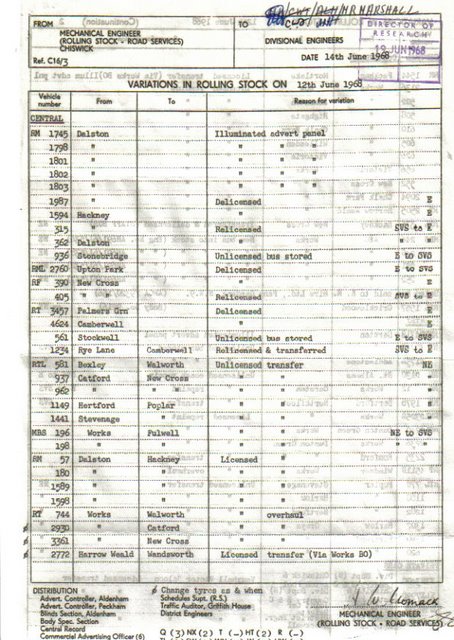 FROM
MECHANICAL ENGINEER
(ROLLING STOCK - ROAD SERVICES)
CHISWICK
Ref. C16/3
TO
DIVISIONAL ENGINEERS
DATE 14th June 1968
DIRECTOR OF
RESEARCH
19 JUN 1968
VARIATIONS IN ROLLING STOCK ON 12th June 1968
Vehicle number From To Reason for variation
CENTRAL
RM 1745 Dalston Illuminated advert panel
1798 " " " "
1801 " " " "
1802 " " " "
1803 " " " "
1987 " Delicensed E
1594 Hackney " E
315 " Relicensed SVS to E
362 Dalston " " "
936 Stonebridge Unlicensed bus stored E to SVS
RML 2760 Upton Park Delicensed E
RF 390 New Cross " E
405 " Relicensed SVS to E
RT 3457 Palmers Grn Delicensed E
4624 Camberwell " E
561 Stockwell Unlicensed bus stored E to SVS
1234 Rye Lane Camberwell Relicensed & transferred SVS to E
RTL 581 Bexley Walworth Unlicensed transfer NE
937 Catford New Cross " " "
962 " " " " "
1149 Hertford Poplar " " "
1441 Stevenage " " " "
MBS 196 Works Fulwell " " NE to SVS
198 " " " " "
RM 57 Dalston Hackney Licensed "
180 " " " "
1589 " " " "
1598 " " " "
RT 744 Works Walworth " overhaul
ø 2930 " Catford " "
ø 3361 " New Cross " "
ø 2772 Harrow Weald Wandsworth Licensed transfer (Via Works BO)
DISTRIBUTION
Advert. Controller, Aldenham
Advert. Controller, Peckham
Blinds Section, Aldenham
Body Spec. Section
Central Record
Commercial Advertising Officer (6)
ø Change tyres as & when
Schedules Supt. (R.S.)
Traffic Auditor, Griffith House
District Engineers
Q (3) NX (2) T (-) HT (2) R (-)
MECHANICAL ENGINEER
(ROLLING STOCK - ROAD SERVICES)